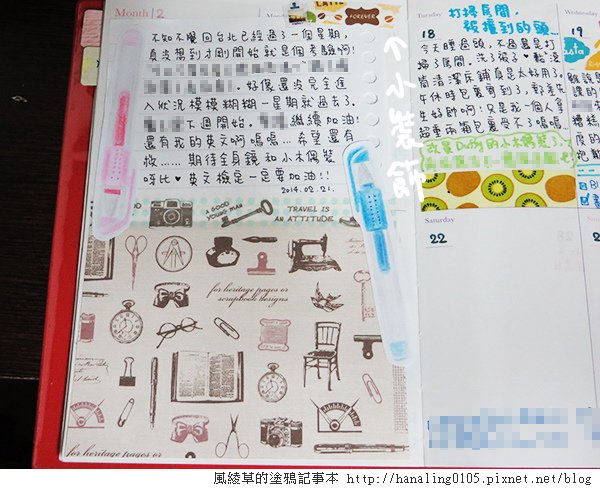 Month 2
LATTE
FOREVER
不知不覺回台北已經過了一個星期,
真沒想到才剛開始就是個考驗啊!
好像還沒完全進
入狀況模模糊糊一星期就過去了.
下週開始. 繼續加油!
還有我的英文啊嗚嗚... 希望還有
救...... 期待全身鏡和小木偶裝
呀比♥英文檢定一定要加油!!
2014.02.21.
←小裝飾
A GOOD
YOUNG MAN
TRAVEL IS
AN ATTITUDE
for heritage pages or
scrapbook designs
for heritage pages or
Tuesday
打掃房間,
被撞到的頭...
18
今天睡過頭,不過還是打
掃了房間,洗了襪子♥
筒清潔床鋪真是太好用了.
午休時包裹到了,郵差先
生好帥啊!只是我一個人拿
超重兩箱包裹受不了嗚嗚
Duffy的小木偶裝了
Wednesday
19
Saturday
22
風綾草的塗鴉記事本 http://hanaling0105.pixnet.net/blog